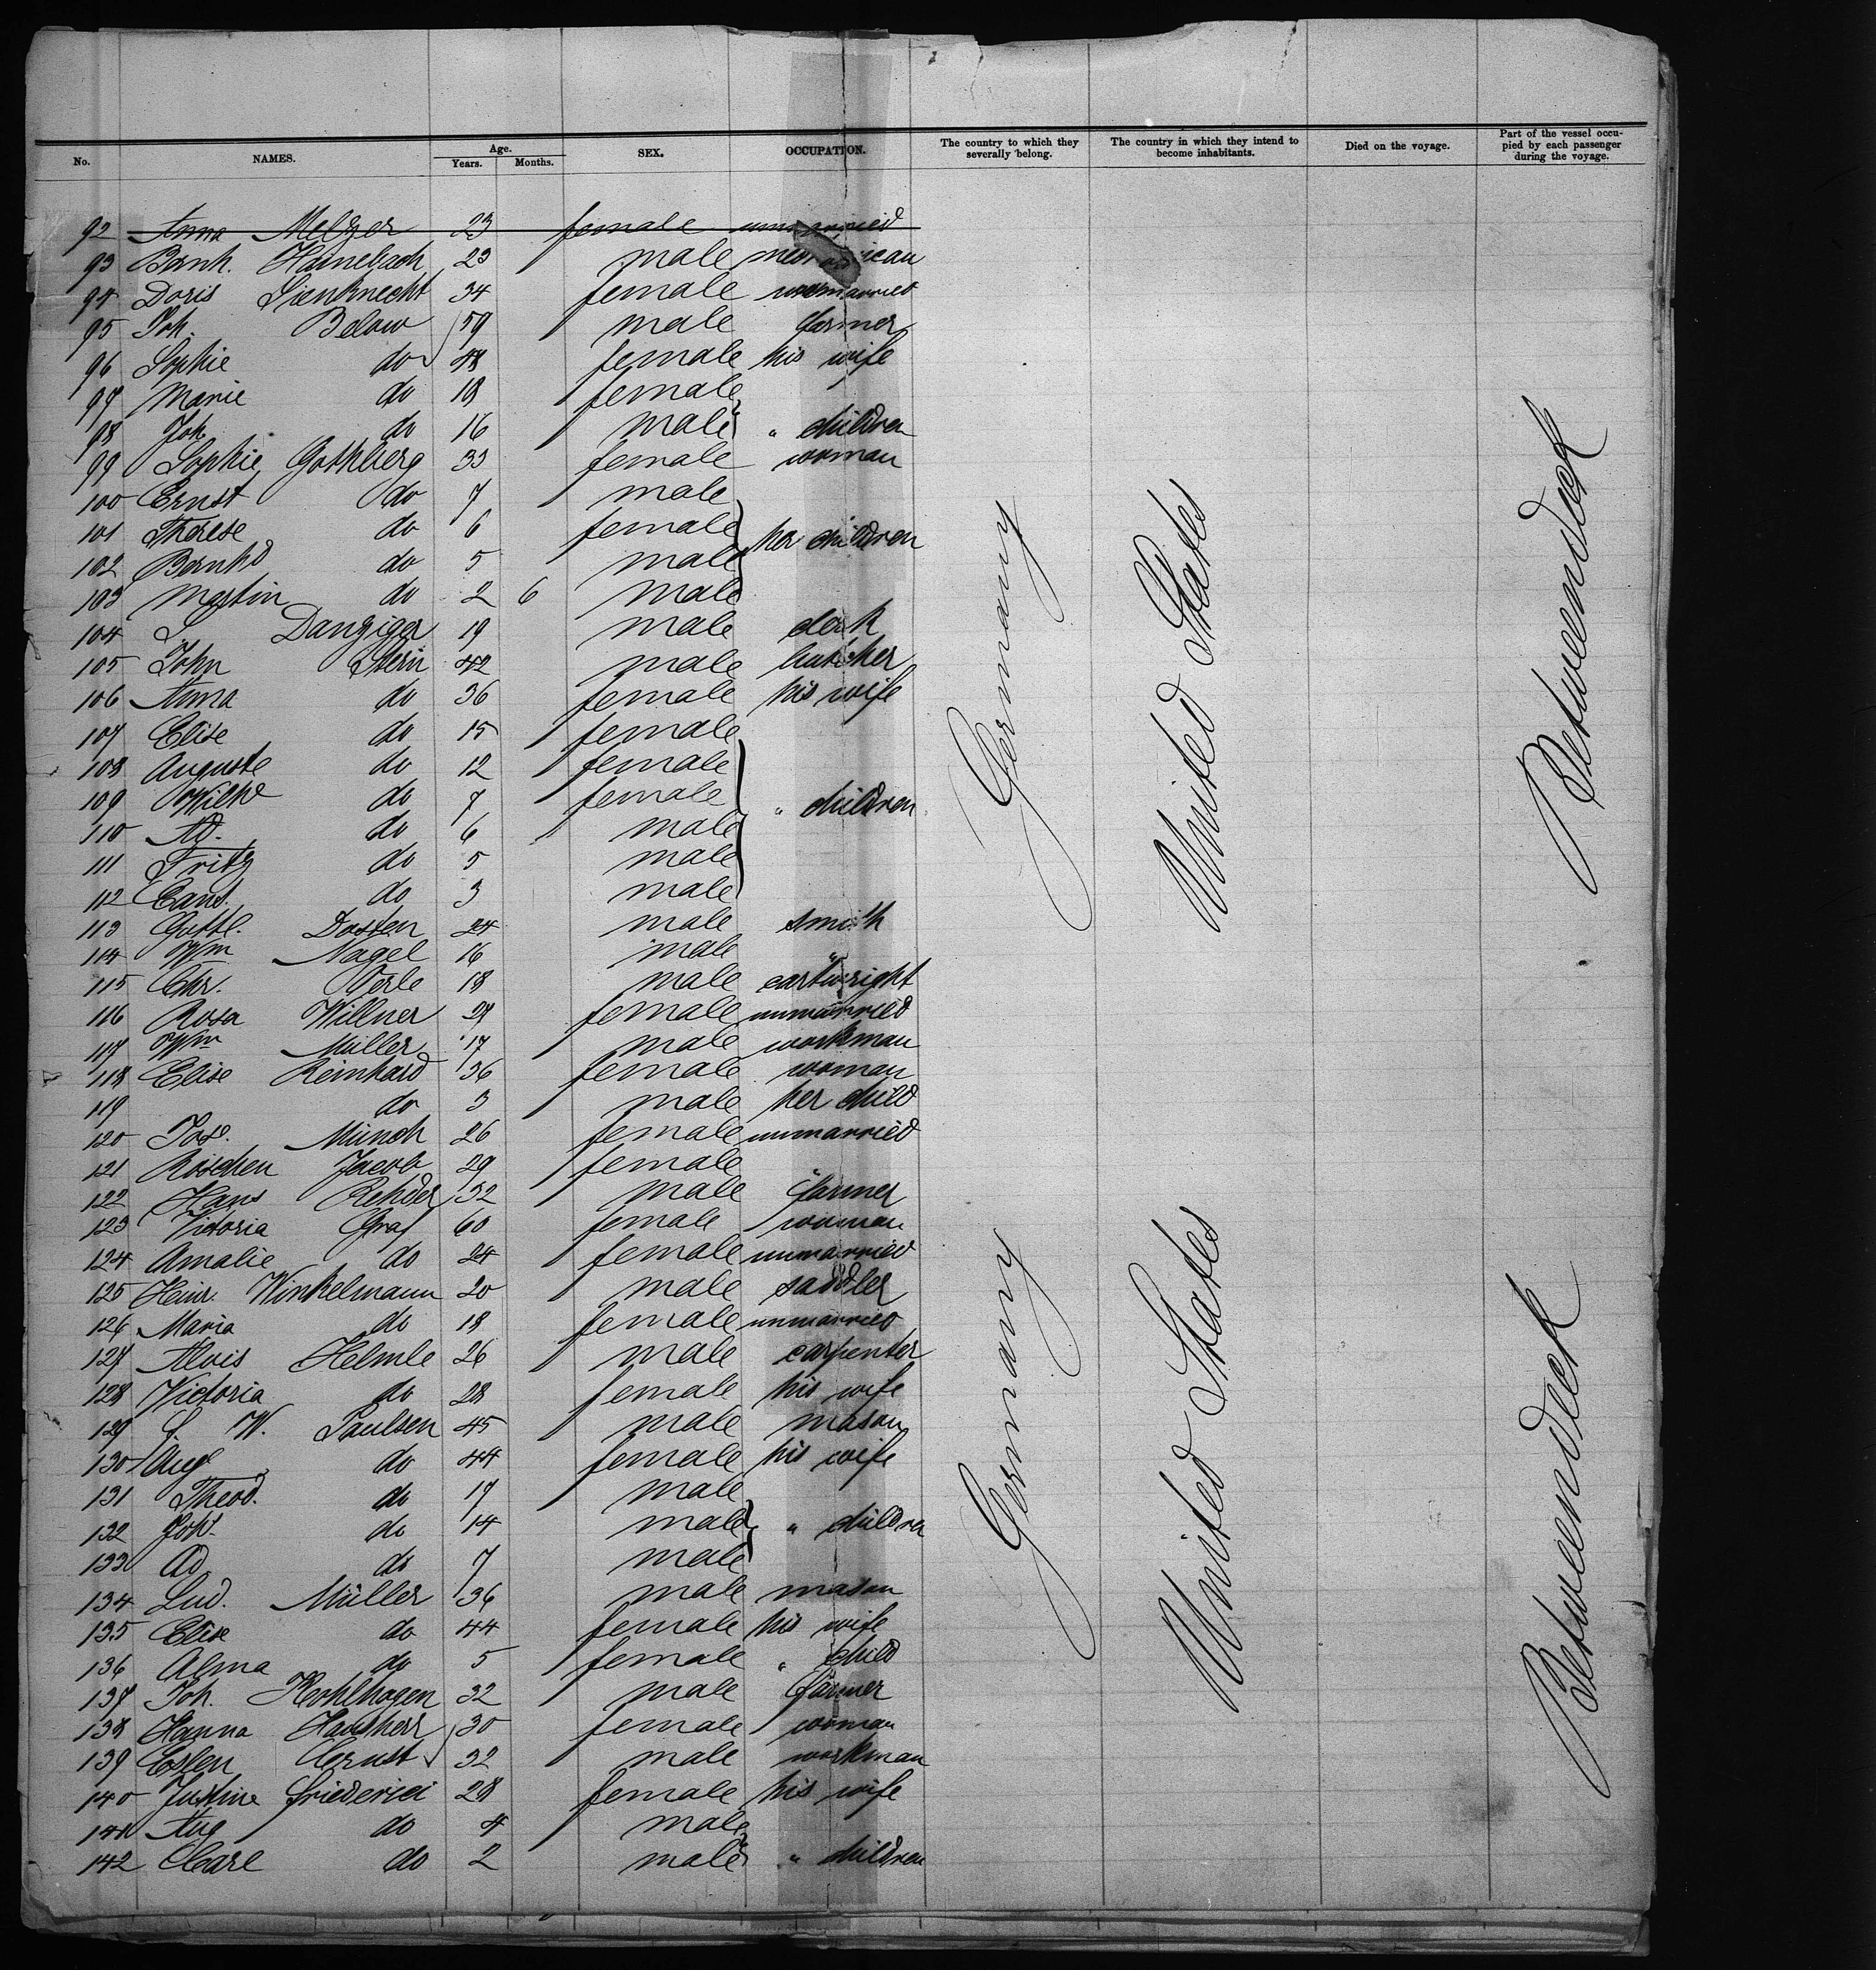 No. NAMES. Age. Years. Months. SEX. OCCUPATION. The country to which they severally belong. The country in which they intend to become inhabitants. Died on the voyage. Part of the vessel occupied by each passenger during the voyage.
92 Anna Melzer 23 female unmarried
93 Bernh. Hainebach 23 male
94 Doris Lienknecht 34 female unmarried
95 Joh. Below 59 male farmer
96 Sophie do 48 female his wife
97 Marie do 18 female
98 Joh. do 16 male " children
99 Sophie Gothberg 33 female woman
100 Ernst do 7 male
101 Therese do 6 female her children
102 Bernhd do 5 male
103 Martin do 2 6 male
104 Danziger 19 male clerk
105 John Stern 42 male butcher
106 Anna do 36 female his wife
107 Elise do 15 female
108 Auguste do 12 female
109 Wilhe do 7 female " children
110 Ad. do 6 male
111 Fritz do 5 male
112 do 3 male
113 Gottl. Dosten 24 male smith
114 Wm Nagel 16 male "
115 Chr. Oerle 18 male cartwright
116 Rosa Willner 29 female unmarried
117 Wm Müller 17 male workman
118 Elise Reinhard 36 female woman
119 do 3 male her child
120 Jose. Münch 26 female unmarried
121 Röschen Jacob 29 female "
122 Hans Rehder 32 male farmer
123 Victoria Graf 60 female woman
124 Amalie do 24 female unmarried
125 Heinr. Winkelmann 20 male saddler
126 Maria do 18 female unmarried
127 Alois Helmle 26 male carpenter
128 Victoria do 28 female his wife
129 W. Paulsen 45 male mason
130 Auge do 44 female his wife
131 Theod. do 17 male
132 Joh. do 14 male " children
133 Ad do 7 male
134 Lud. Müller 36 male mason
135 Elise do 44 female his wife
136 Alma do 5 female " child
137 Joh. Kohlhagen 32 male farmer
138 Hanna Hausherr 30 female woman
139 Ernst 32 male workman
140 Justine Friederici 28 female his wife
141 Aug do 4 male
142 Carl do 2 male " children
Germany
United States
Betweendeck
Germany
United States
Betweendeck